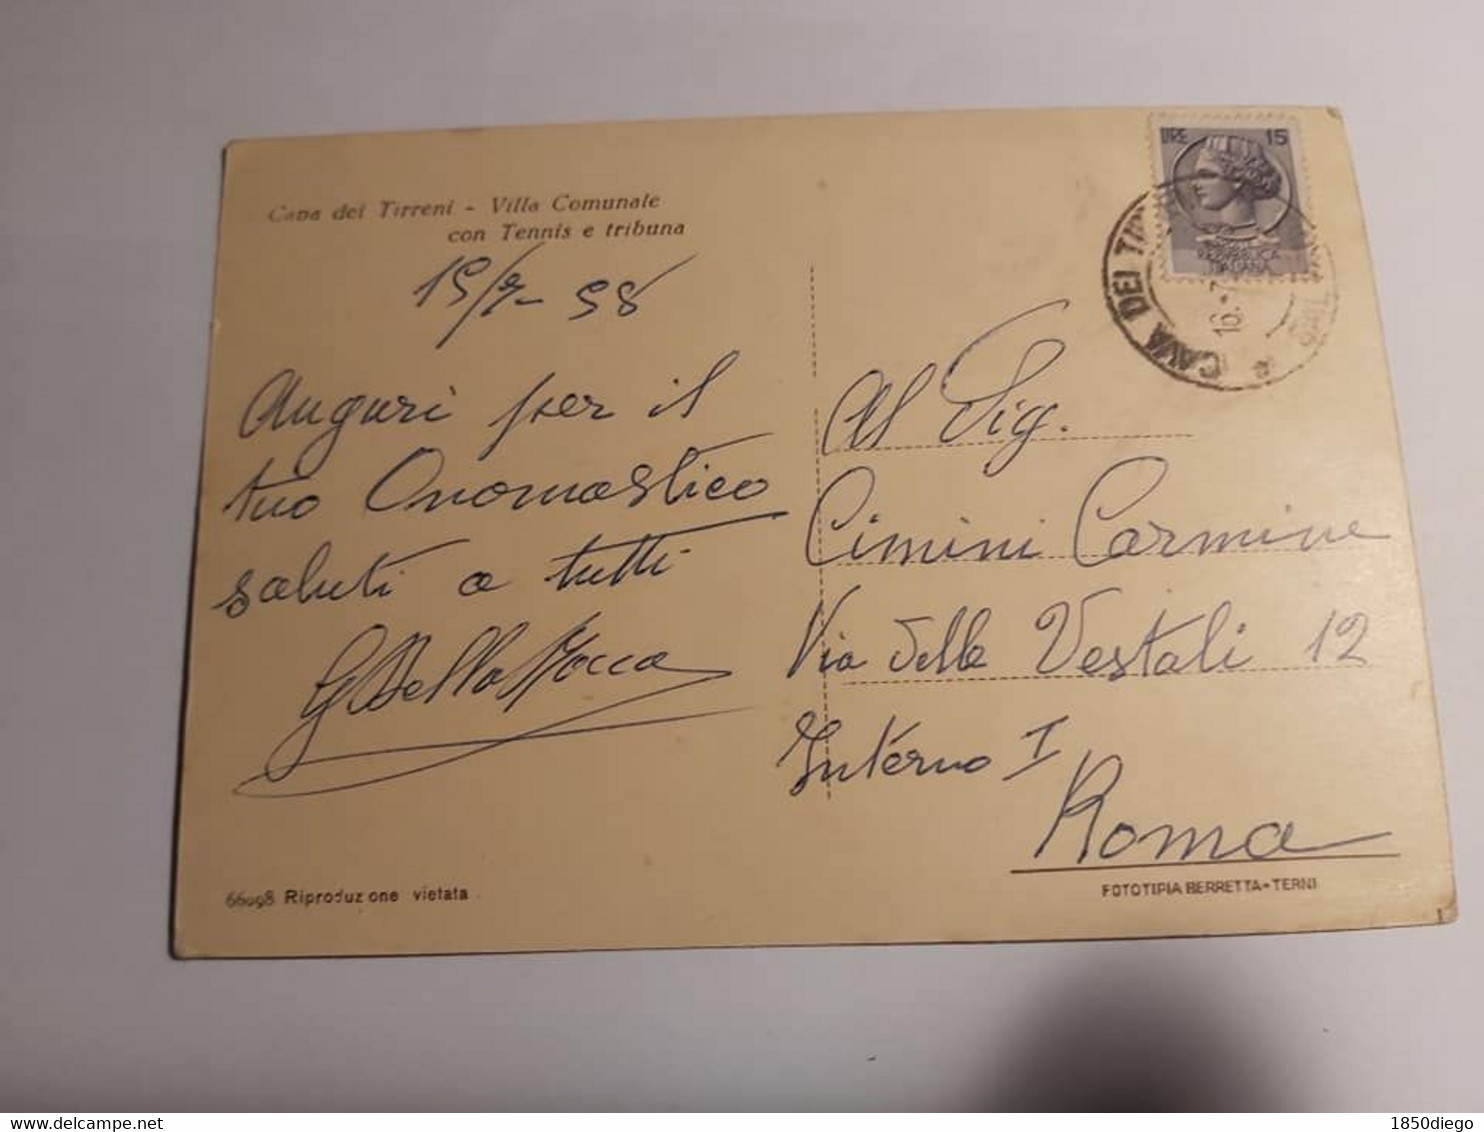 Cava dei Tirreni - Villa Comunale
con Tennis e tribuna
15/7-58
Auguri per il
tuo Onomastico
saluti a tutti
LIRE 15
REPUBBLICA
ITALIANA
CAVA DEI TIR
16.
Al Sig.
Cimini Carmine
Via delle Vestali 12
Interno I
Roma
66098 Riproduzione vietata
FOTOTIPIA BERRETTA-TERNI
1850diego